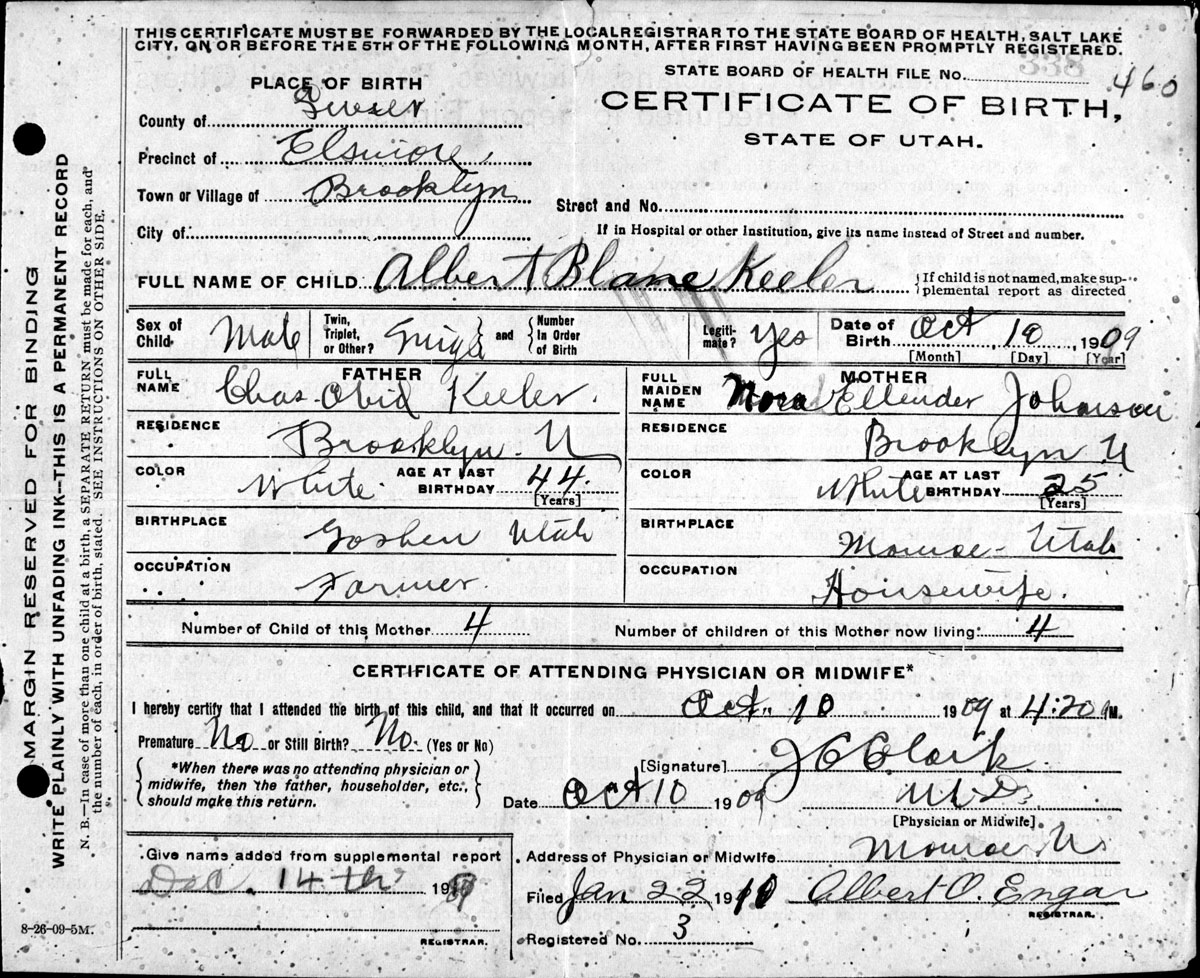 THIS CERTIFICATE MUST BE FORWARDED BY THE LOCAL REGISTRAR TO THE STATE BOARD OF HEALTH, SALT LAKE
CITY, ON OR BEFORE THE 5TH OF THE FOLLOWING MONTH, AFTER FIRST HAVING BEEN PROMPTLY REGISTERED.
STATE BOARD OF HEALTH FILE NO. 460
338
CERTIFICATE OF BIRTH,
STATE OF UTAH.
PLACE OF BIRTH
County of Sevier
Precinct of Elsinore
Town or Village of Brooklyn
City of
Street and No.
If in Hospital or other Institution, give its name instead of Street and number.
FULL NAME OF CHILD Albert Blane Keeler {If child is not named, make sup-
plemental report as directed
Sex of Child Male
Twin, Triplet, or Other? Single and Number In Order of Birth
Legiti-mate? Yes
Date of Birth Oct 10, 1909
[Month] [Day] [Year]
FATHER
FULL NAME Chas Ovid Keeler.
RESIDENCE Brooklyn U
COLOR White. AGE AT LAST BIRTHDAY 44. [Years]
BIRTHPLACE Goshen Utah
OCCUPATION Farmer.
MOTHER
FULL MAIDEN NAME Nora Ellender Johnson
RESIDENCE Brooklyn U
COLOR White AGE AT LAST BIRTHDAY 25 [Years]
BIRTHPLACE Monroe Utah
OCCUPATION Housewife.
Number of Child of this Mother 4
Number of children of this Mother now living: 4
CERTIFICATE OF ATTENDING PHYSICIAN OR MIDWIFE*
I hereby certify that I attended the birth of this child, and that it occurred on Oct. 10 1909 at 4:20 M.
Premature No or Still Birth? No. (Yes or No)
{*When there was no attending physician or
midwife, then the father, householder, etc.,
should make this return.}
[Signature] J C Clark
Date Oct 10 1909 M. D.
[Physician or Midwife]
Give name added from supplemental report
Dec. 14th 19
REGISTRAR.
Address of Physician or Midwife Monroe U.
Filed Jan 22 1910 Albert O. Engar
REGISTRAR.
Registered No. 3
8-26-09-5M.
MARGIN RESERVED FOR BINDING
WRITE PLAINLY WITH UNFADING INK—THIS IS A PERMANENT RECORD
N. B.—In case of more than one child at a birth, a SEPARATE RETURN must be made for each, and
the number of each, in order of birth, stated. SEE INSTRUCTIONS ON OTHER SIDE.